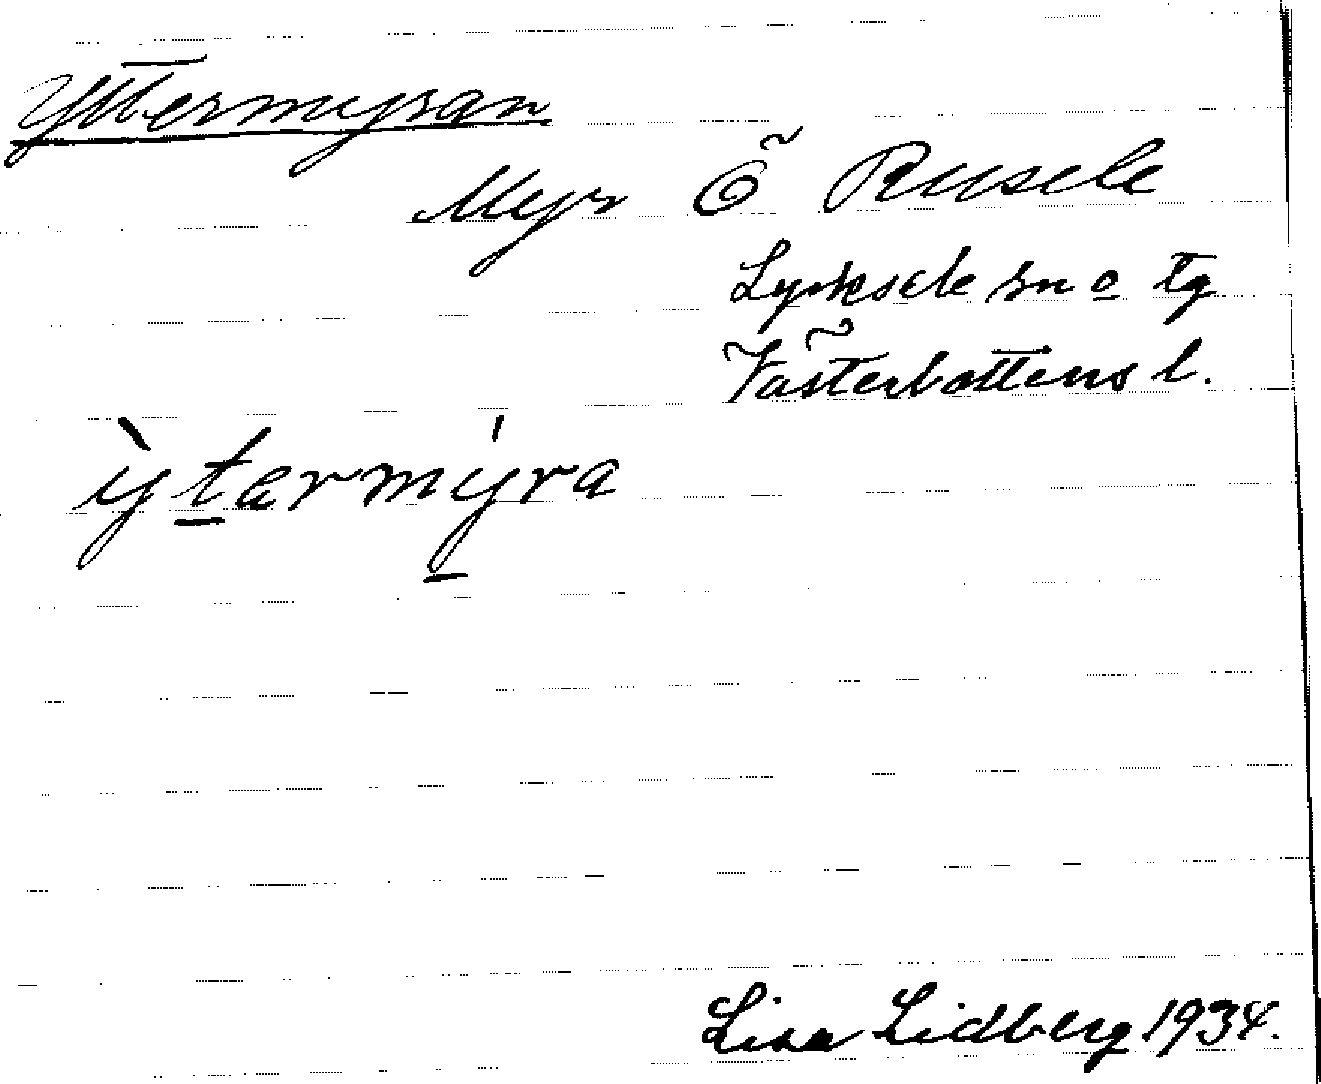 Yttermyran
Myr Ö Rusele
Lycksele sn o tg
Västerbottens l.
ỳ̖termý̖ra
Lisa Lidberg 1934.